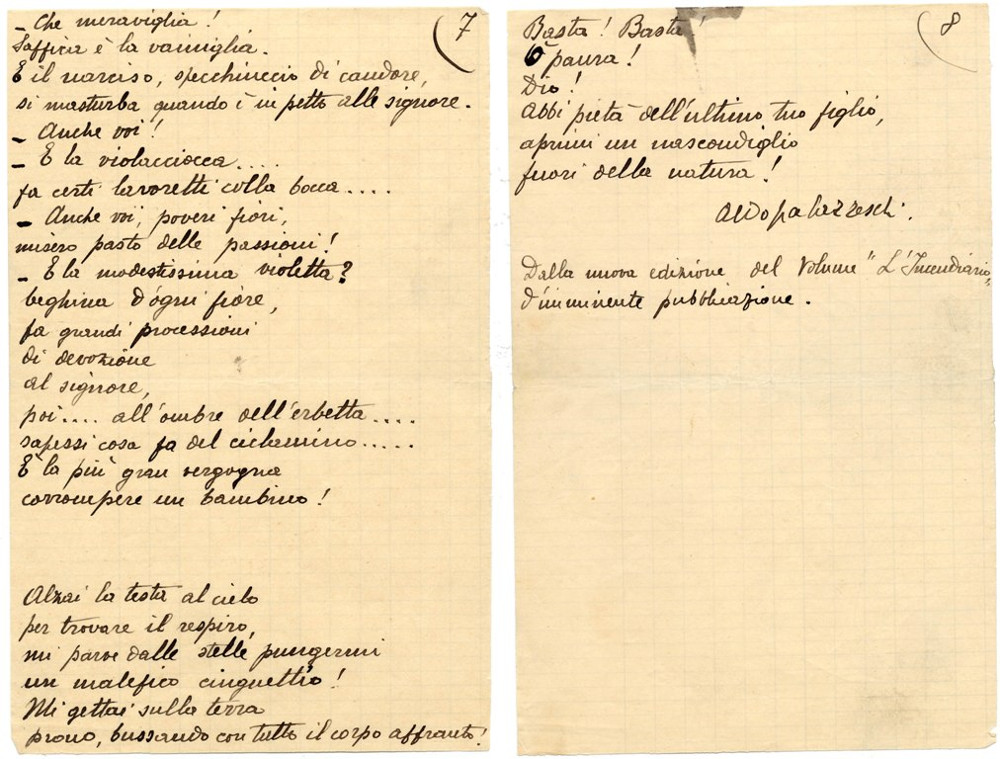 7
- Che meraviglia!
Saffica è la vainiglia.
E il narciso, specchiuccio di candore,
si masturba quando è in petto alle signore.
- Anche voi!
- E la violacciocca....
fa certi lavoretti colla bocca....
- Anche voi, poveri fiori,
misero pasto delle passioni!
- E la modestissima violetta?
beghina d'ogni fiore,
fa grandi processioni
di devozione
al signore,
poi.... all'ombre dell'erbetta....
sapessi cosa fa del ciclamino.....
È la più gran vergogna
corrompere un bambino!
Alzai la testa al cielo
per trovare il respiro,
mi parve dalle stelle pungermi
un malefico cinguettìo!
Mi gettai sulla terra
prono, bussando con tutto il corpo affranto!
8
Basta! Basta!
Ò paura!
Dio!
Abbi pietà dell'ultimo tuo figlio,
aprimi un nascondiglio
fuori della natura!
Aldo Palazzeschi.
Dalla nuova edizione del Volume "L'Incendiario"
d'imminente pubbliazione.